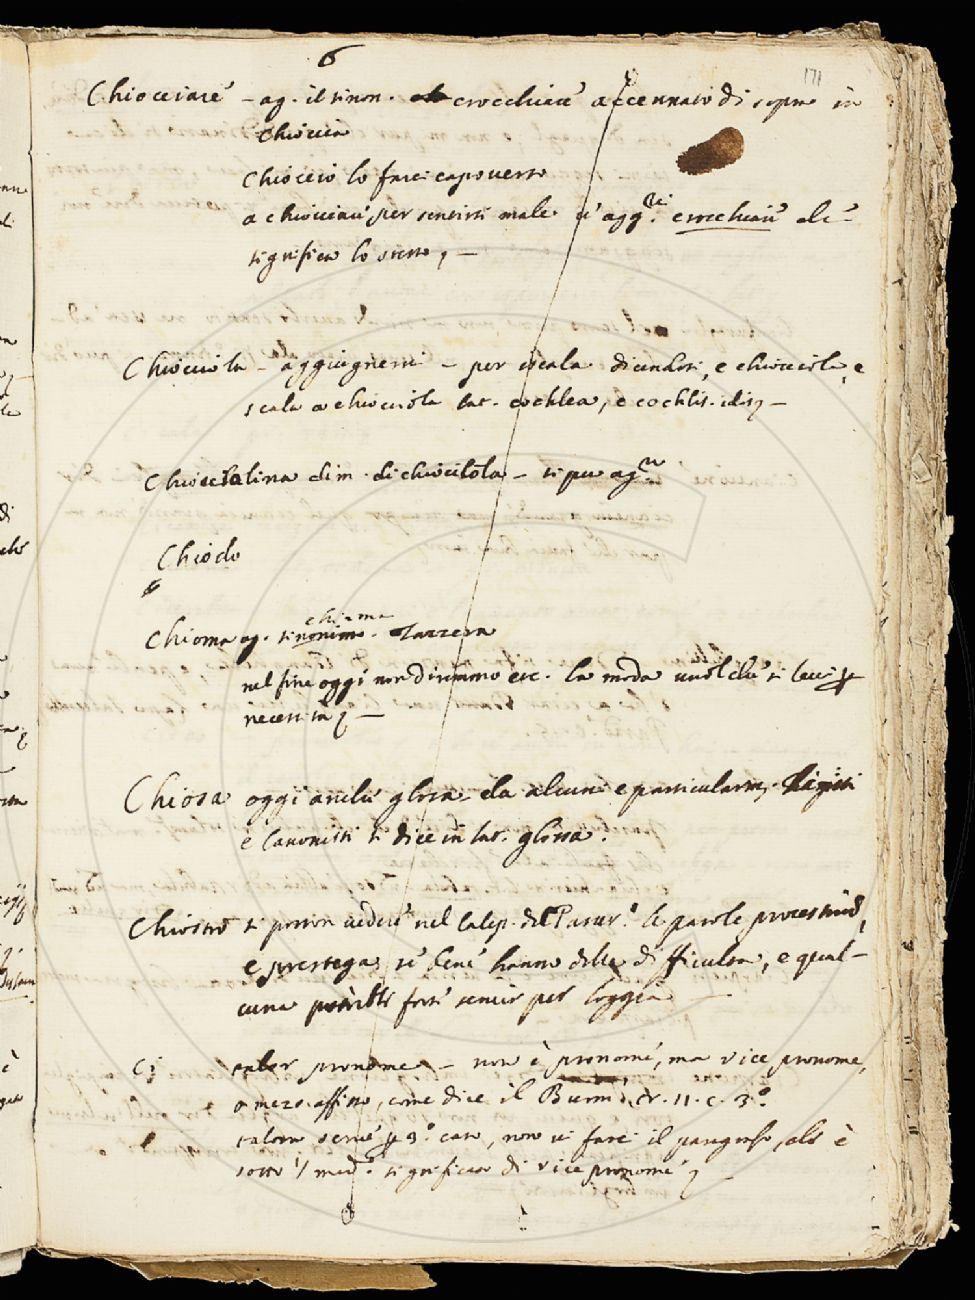 6
171
Chiocciare - ag. il sinon. crocchiare accennato di sopra in
Chioccia
Chioccio lo farei capoverso
a chiocciare per sentirsi male si agg. crocchiare che
significa lo stesso, -
Chiocciola - aggiugnerei - per iscala dicendosi, e chiocciola, e
scala a chiocciola lat. cochlea, e cochlis. idis, -
Chiocciolina dim. di chiocciola - si può ag.
Chiodo
Chioma ag. sinonimo. Zazzera
chiama
nel fine oggi non diremmo etc. la moda vuol che si levi
necessità, -
Chiosa oggi anche glosa da alcuni e particolarm. Legisti
e Canonisti si dice in lat. glossa.
Chiostro si posson vedere nel Calep. del Passer. le parole
e se bene hanno delle difficultà, e qual-
cuna potrebbe forse servir per loggia -
Ci pronome - non è pronome, ma vice pronome,
o mezo affisso, come dice il Buom. tr. 11. c. 3.
talora serve 3.° caso, non vi farei il paragrafo, che è
sotto significar di vice pronome,